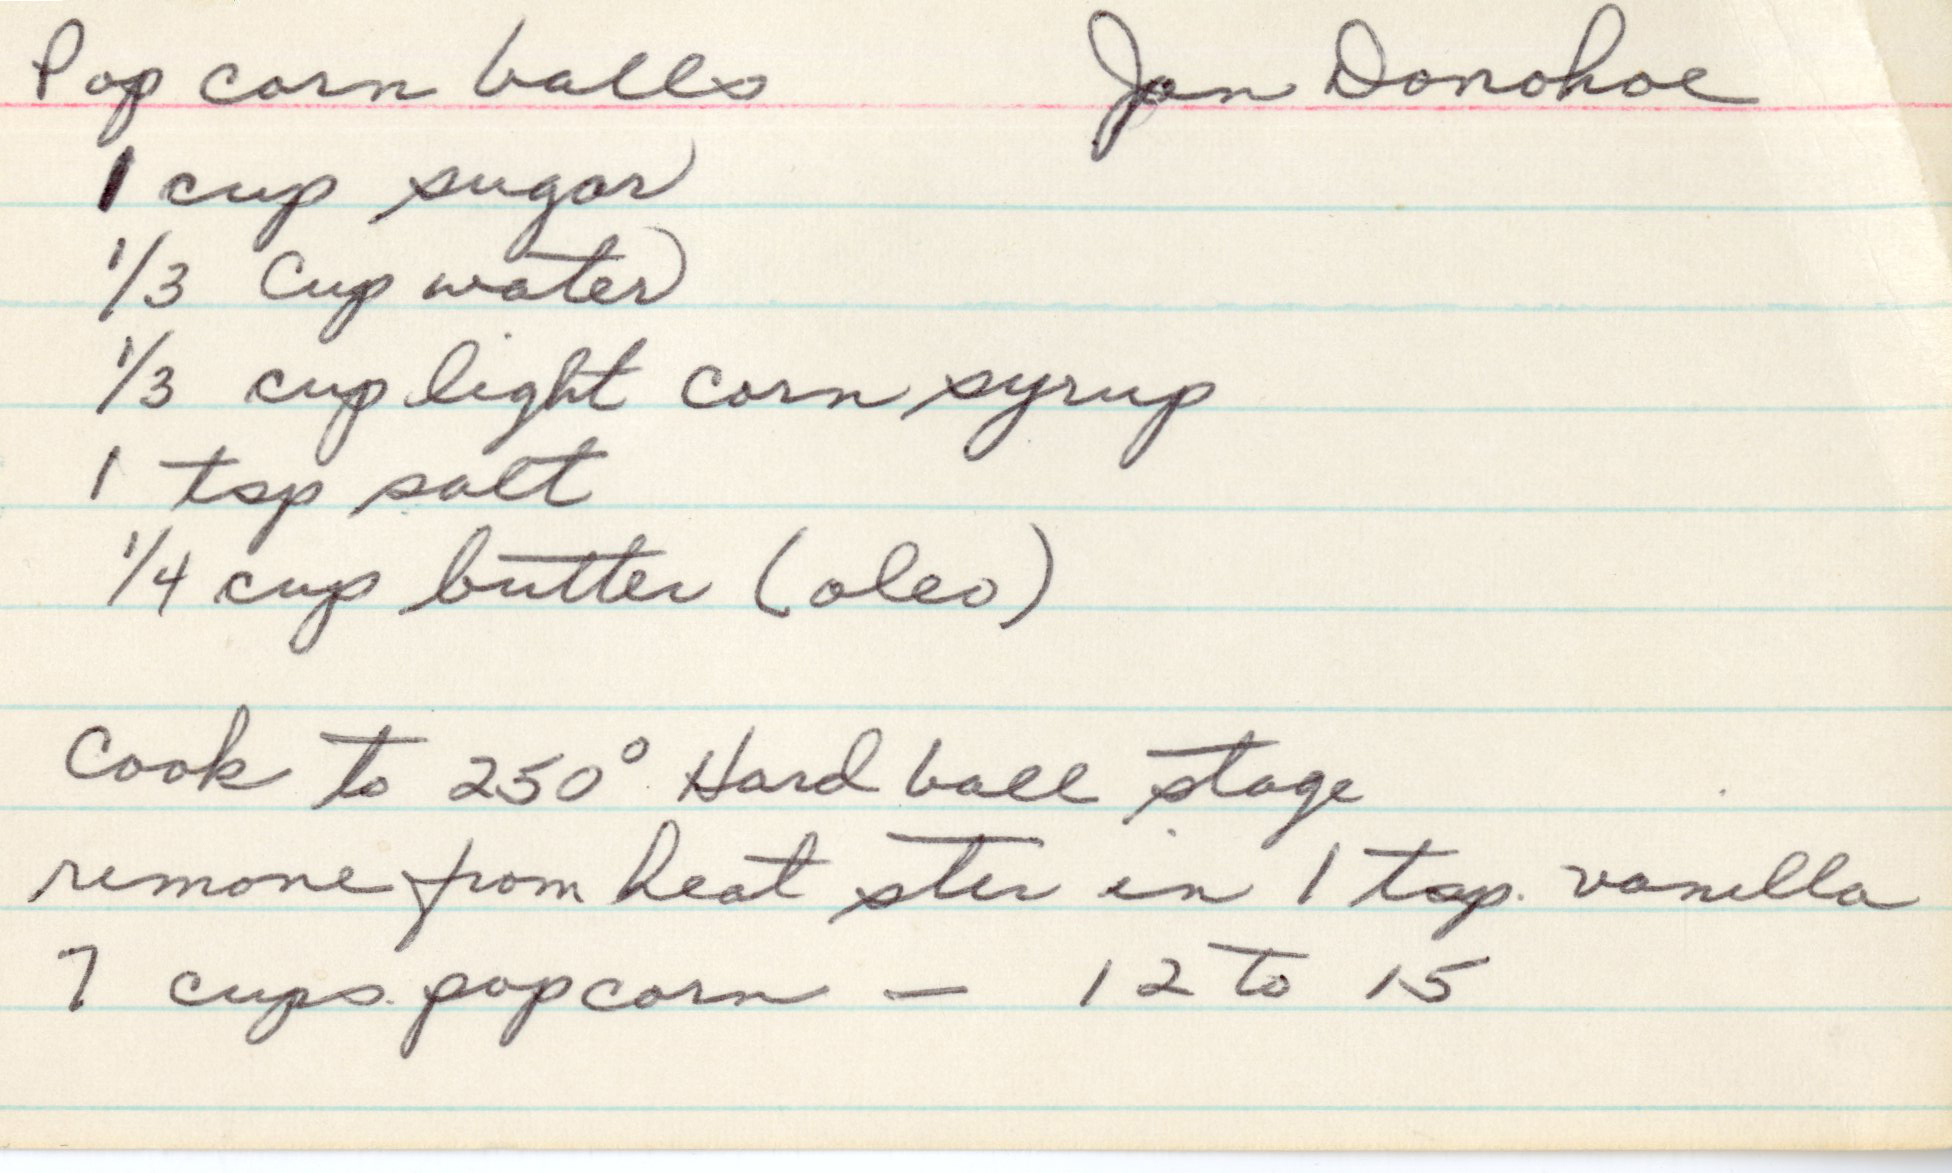 Pop corn balls Jan Donohoe
1 cup sugar
1/3 Cup water
1/3 cup light corn syrup
1 tsp salt
1/4 cup butter (oleo)
Cook to 250° Hard ball stage
remove from heat stir in 1 tsp. vanilla
7 cups popcorn — 12 to 15